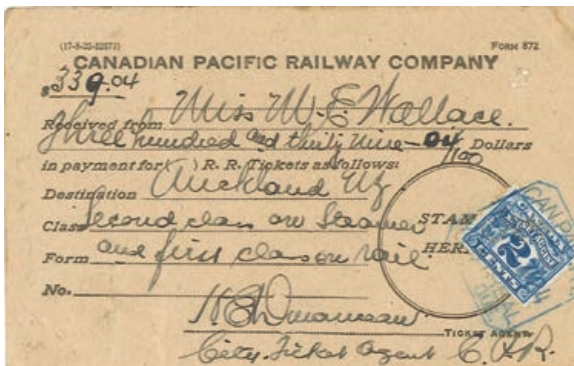 (17-8-25-52873) FORM 872
CANADIAN PACIFIC RAILWAY COMPANY
$339.04
Received from Miss M. E. Wallace.
Three hundred and thirty nine - 04/100 Dollars
in payment for ( ) R. R. Tickets as follows:
Destination Auckland NZ
Class Second class on Steamer
Form and first class on rail.
No.
STAMP HERE
CANADA
2
CENTS
TICKET AGENT
City Ticket Agent C.P.R.